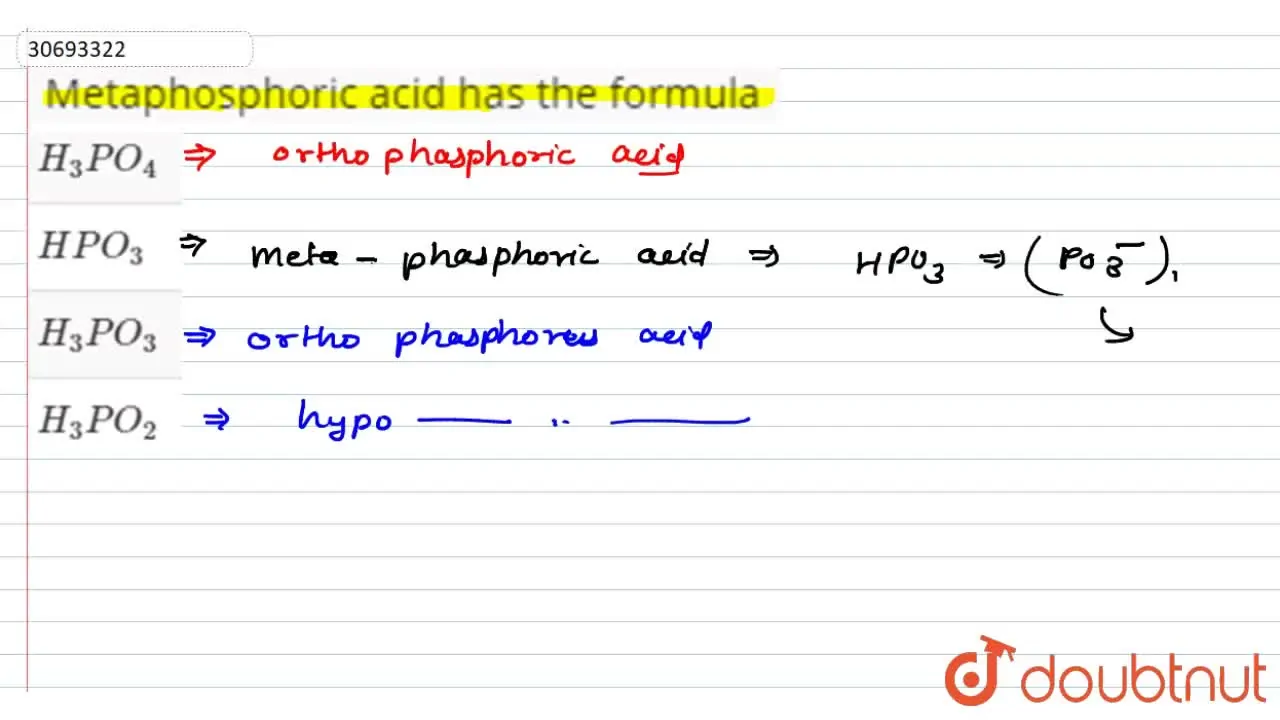 30693322
Metaphosphoric acid has the formula
H₃PO₄ ⇒ ortho phasphoric acid
HPO₃ ⇒ meta - phasphoric acid ⇒ HPO₃ ⇒ (PO₃⁻)₁
H₃PO₃ ⇒ ortho phasphorous acid
H₃PO₂ ⇒ hypo —— .. ——
doubtnut